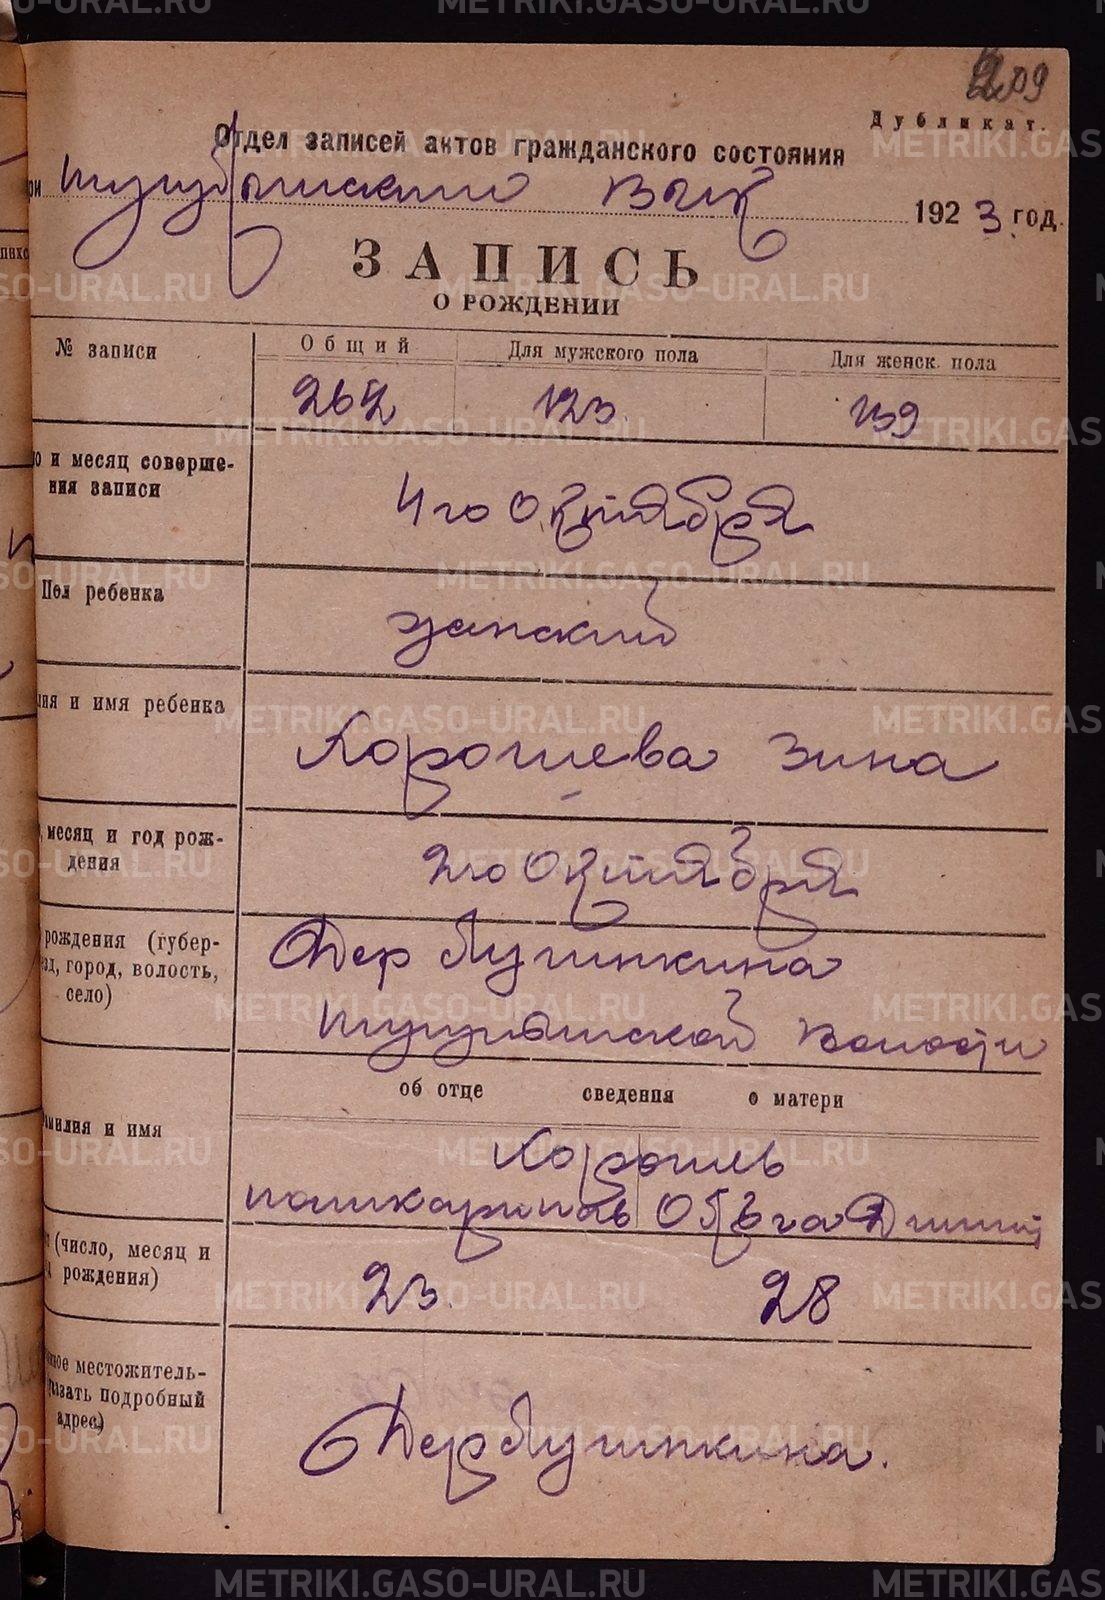 209
Дубликат.
Отдел записей актов гражданского состояния
ри Шугурышском Вик 1923 год.
ЗАПИСЬ
О РОЖДЕНИИ
№ записи
Общий
Для мужского пола
Для женск. пола
262
123.
139
о и месяц соверше-
ния записи
4 го Октября
Пол ребенка
женский
лия и имя ребенка
Хорошева Зина
, месяц и год рож-
дения
2 го Октября
рождения (губер-
зд, город, волость,
село)
Дер
Волости
об отце сведения о матери
амилия и имя
(число, месяц и
д рождения)
23.
28
нное местожитель-
казать подробный
адрес)
Дер
METRIKI.GASO-URAL.RU